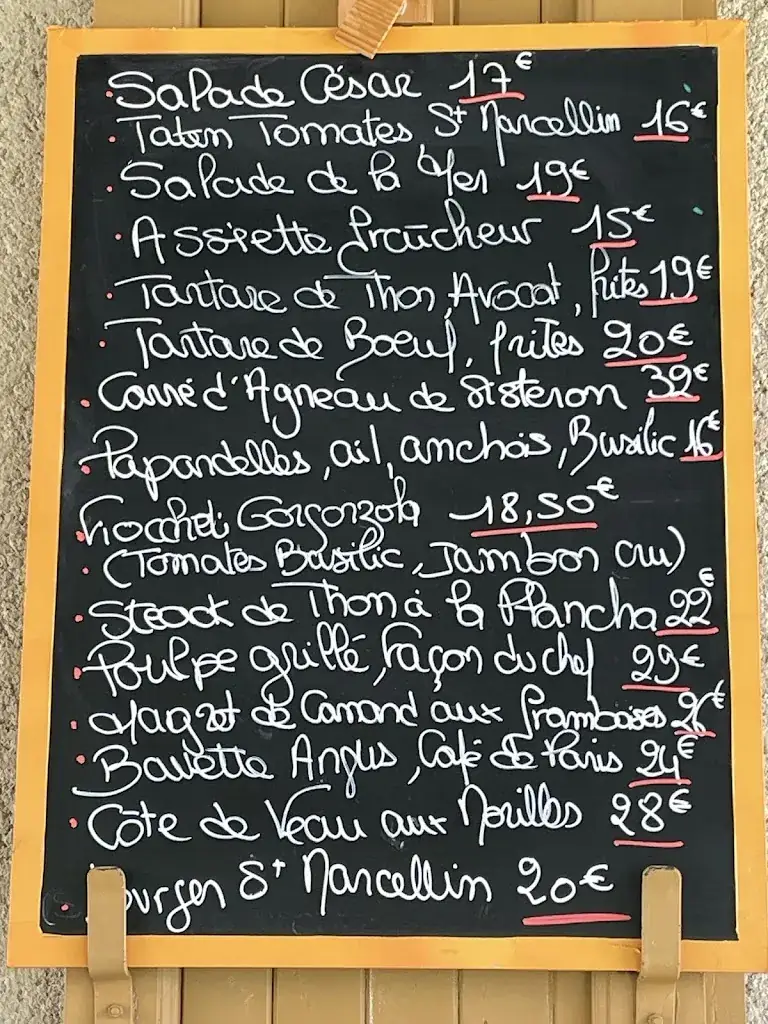 Salade César 17€
Tatin Tomates St Marcellin 16€
Salade de la Mer 19€
Assiette fraîcheur 15€
Tartare de Thon, Avocat, frites 19€
Tartare de Boeuf, frites 20€
Carré d'Agneau de Sisteron 32€
Papardelles, ail, anchois, Basilic 16€
Fiocchet. Gorgonzola 18,50€
(Tomates Basilic, Jambon cru)
Steack de Thon à la Plancha 22€
Poulpe grillé, façon du chef 29€
Magret de Canard aux framboises 26€
Bavette Angus, Café de Paris 24€
Côte de Veau aux Morilles 28€
Burger St Marcellin 20€